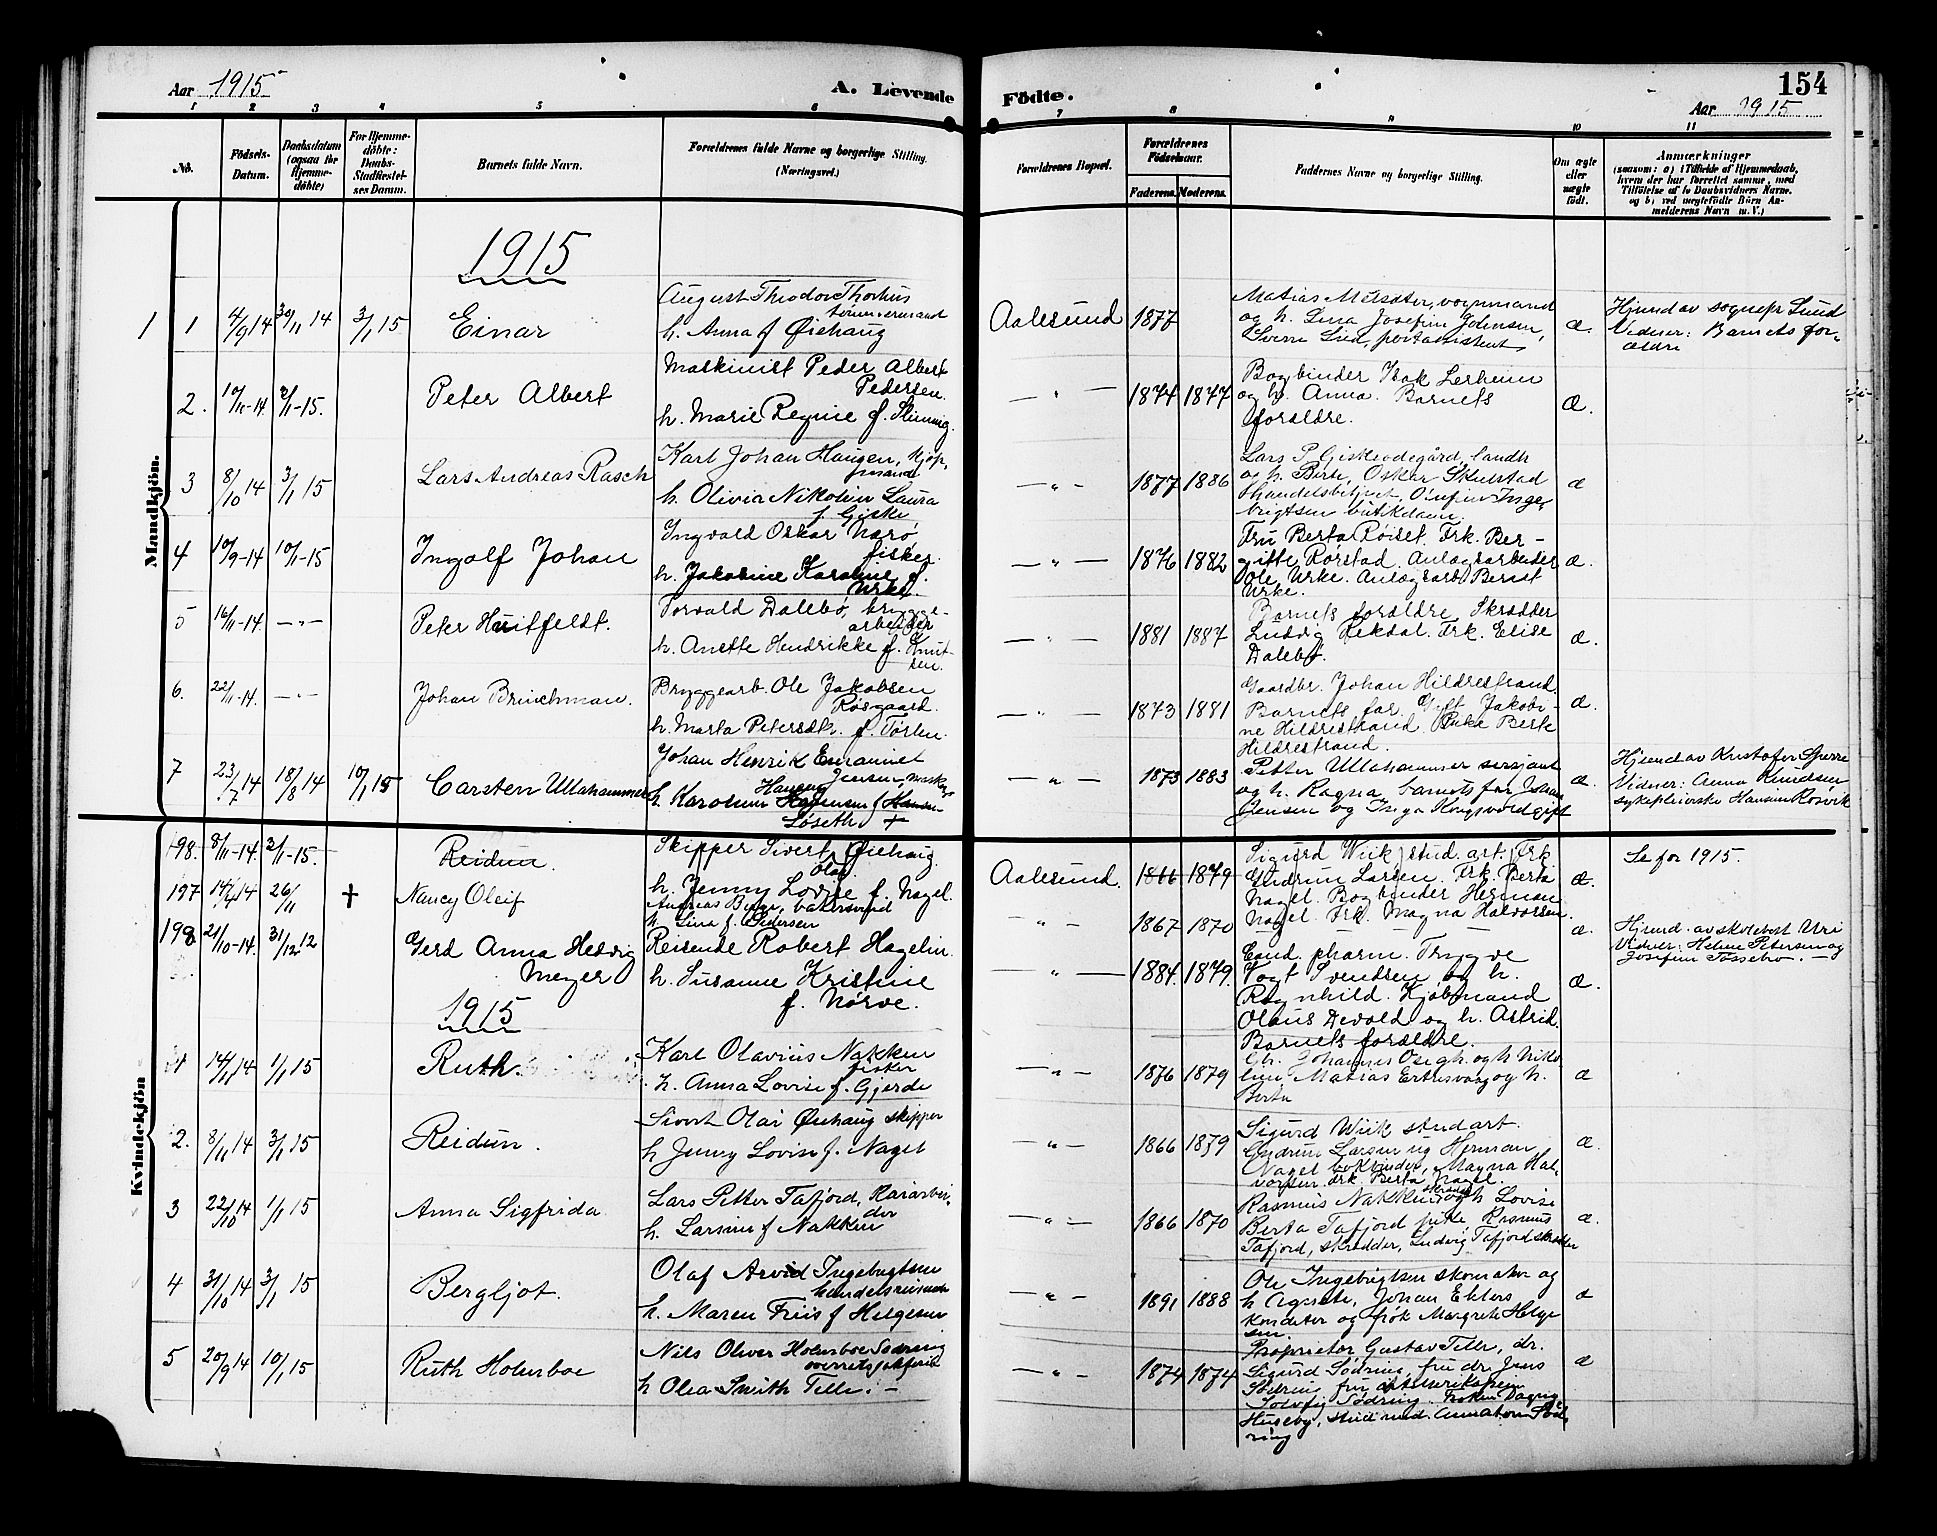 154
Aar 1915
A. Levende Födte.
Aar 1915
1 2 3 4 5 6 7 8 9 10 11
No.
Födsels-Datum.
Daabsdatum (ogsaa for Hjemme-döbte)
For Hjemme-döbte: Daabs-Stadfæstel-ses Datum.
Barnets fulde Navn.
Forældrenes fulde Navne og borgerlige Stilling. (Næringsvei.)
Forældrenes Bopæl.
Forældrenes Födselsaar.
Faderens. Moderens.
Faddernes Navne og borgerlige Stilling.
Om ægte eller uægte födt.
Anmærkninger
(saasom: a) i Tilfælde af Hjemmedaab,
hvem der har forrettet samme, med
Tilföielse af to Daabsvidners Navne.
og b) ved uægtefödte Börn An-
melderens Navn m. V.)
Mandkjön.
1915
1 1 4/9 14 30/11 14 3/1 15 Einar
August Theodor Thorhus
tömmermand
h. Anna f Øiehaug
Aalesund 1877
vognmand
og h. Lina Josefine Johnsen,
Sverre Lied, postassistent
æ.
Hjemd av sognepr Lund
Vidner: Barnets for-
ældre
2. 10/11-14. 3/1-15. Peter Albert
Maskinist Peder Albert
Pedersen.
h. Marie Regine f.
— " — 1874 1847
Bogbinder Isak Lerheim
og h. Anna. Barnets
forældre.
Æ.
3 8/10 14 3/1 15 Lars Andreas Rasch
Karl Johan Haugen, kjøp-
mand
h. Olivia Nikolin Laura
f. Giske
— " — 1877 1886
Lars P. Giskeødegård, landh
og h. Berte, Oskar Skulstad
handelsbetjent, Inge-
brigtsen butikdame.
æ
4 10/9-14 10/1-15 Ingolf Johan
Ingvald Oskar Narø
fisker.
h. Jakobine Karoline f.
Urke.
— " — 1876 1882
Fru Berta Røiset. Frk. Ber-
gitte Rørstad. Anlægsarbeider
Ole Urke. Anlægsarb. Bernt
Urke.
æ.
5 16/11-14. — " — Peter Huitfeldt.
Torvald Dalebø, brygge-
arbeider
h. Anette Hendrikke f. Knut-
sen.
— " — 1881 1887
Barnets forældre Skrædder
Ludvig Rekdal. Frk. Elise
Dalebø.
æ.
6. 22/11-14. — " — Johan Brinchman.
Bryggearb. Ole Jakobsen
Røsgaard.
h. Marta Petersdt. f. Tørlen.
— " — 1843 1881
Gaardbr. Johan Hildrestrand.
Barnets far. Gift Jakobi-
ne Hildrestrand. Pike Berte
Hildrestrand.
æ.
7 23/7 14 18/8 14 10/1 15 Carsten Ullahammer
Johan Henrik Emanuel
Jensen,
Hansine
h. Karoline f
Løseth +
— " — 1873 1883
Petter Ullahammer sersjant
og h. Ragna barnets far Johan
Jensen og Inga Kongsvold gift
æ.
Hjemd av Kristofer Sperre
Vidner: Anna Knudsen
sykepleierske Hansine Rosvik
Kvindekjön
198. 8/11-14. 3/1-15. Reidun.
Skipper Sivert Olai Øiehaug.
h. Jenny Lovise f. Nagel.
Aalesund. 1866 1879
Sigurd Wiik, stud. art. Frk.
Gudrun Larsen. Frk. Berta
Nagel. Bogbinder Herman
Nagel. Frk. Magna Halvorsen.
æ.
Se for 1915.
197 14/4 14 26/11 † Nancy Oleif
h. Lina f. Pedersen
" — 1867 1870
— — — —
æ.
Hjemd. av skolebest Uri
Vidner: Helene Petersen og
Josefine Tøssebro. —
198 21/10-14. 31/12 12 Gerd Anna Hedvig
Meyer
Reisende Robert Hagelin.
h. Susanne Kristine
f. Nørve.
— " — 1884 1879.
Cand. pharm. Trygve
Vogt Svendsen og h.
Ragnhild. Kjøbmand
Olaus Devold og h. Astrid.
Barnets forældre.
æ.
1915
1 14/11 14 1/1 15 Ruth.
Karl Olavius Nakken
fisker
h. Anna Lovise f. Gjerde
— " — 1876 1879
Gbr. Johannes
Matias og h.
Berta
æ
2. 8/11 14 3/1 15 Reidun.
Sivert Olai Øiehaug skipper
h Jenny Lovise f. Nagel
— " — 1866 1879
Sigurd Wiik stud art.
Gudrun Larsen og Herman
Nagel bokbinder, Magna Hal-
vorsen frk Berta Nagel.
æ
3 22/10 14 1/1 15 Anna Sigfrida
Lars Petter Tafjord,
h. Larsine f Nakken
— " — 1866 1870
Rasmus Nakken skrædder og h Lovise
Berta Tafjord pike, Rasmus
Tafjord, skrædder, Ludvig Tafjord skrædder
æ.
4 31/10 14 3/1 15 Bergljot.
Olaf Arvid Ingebrigtsen
handelsreisende
h. Maren Friis f Helgesen
— " — 1891 1888
Ole Ingebrigtsen skomaker og
h Agnete, Johan Ehlers
konditor og frøk Margrete Helge
sen.
æ
5 20/9 14 10/1 15 Ruth Holmboe
Nils Oliver Holmboe Sødring
overretssakfører
h Olea Smith Telle. —
— " — 1874 1874
Proprietør Gustav Telle, dr.
Sigurd Sødring, fru dr. Jens
Sødring, fru
Solveig Sødring. Frøken Dagny
Huseby, stud med. Anna Sød-
ring
æ